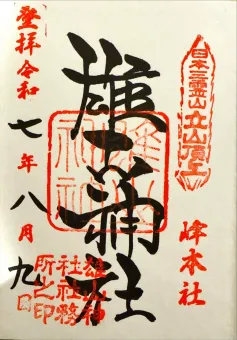 日本三霊山立山頂上
峰本社
雄山神社
雄山神社
雄山神
社社務
所之印
登拝令和
七年八月九日